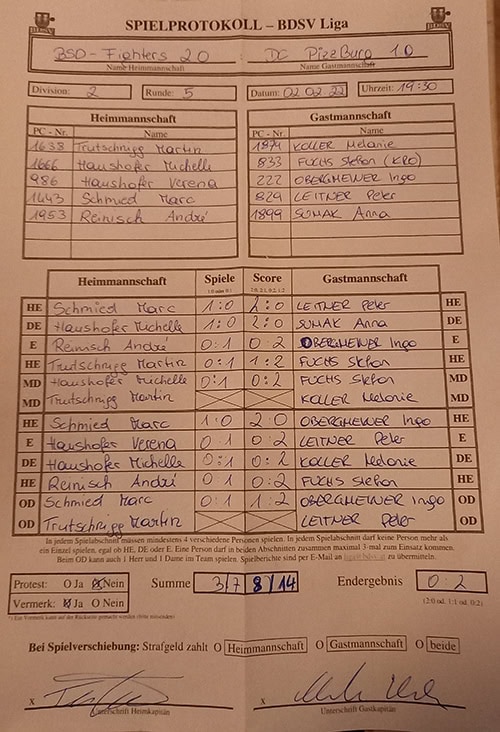 SPIELPROTOKOLL – BDSV Liga
BSO-Fighters 2.0 DC PizzBurg 1.0
Name Heimmannschaft Name Gastmannschaft
Division: 2 Runde: 5 Datum: 02.02.22 Uhrzeit: 19:30
Heimmannschaft Gastmannschaft
PC - Nr. Name PC - Nr. Name
1638 Trutschnigg Martin 1874 KOLLER Melanie
1666 Haushofer Michelle 833 FUCHS Stefan (KRO)
986 Haushofer Verena 222 OBERGMEINER Ingo
1443 Schmied Marc 829 LEITNER Peter
1953 Reinisch André 1899 SUMAK Anna
Heimmannschaft Spiele Score Gastmannschaft
HE Schmied Marc 1:0 2:0 LEITNER Peter HE
DE Haushofer Michelle 1:0 2:0 SUMAK Anna DE
E Reinisch André 0:1 0:2 OBERGMEINER Ingo E
HE Trutschnigg Martin 0:1 1:2 FUCHS Stefan HE
MD Haushofer Michelle 0:1 0:2 FUCHS Stefan MD
MD Trutschnigg Martin KOLLER Melanie MD
HE Schmied Marc 1:0 2:0 OBERGMEINER Ingo HE
E Haushofer Verena 0:1 0:2 LEITNER Peter E
DE Haushofer Michelle 0:1 0:2 KOLLER Melanie DE
HE Reinisch André 0:1 0:2 FUCHS Stefan HE
OD Schmied Marc 0:1 1:2 OBERGMEINER Ingo OD
OD Trutschnigg Martin LEITNER Peter OD
In jedem Spielabschnitt müssen mindestens 4 verschiedene Personen spielen. In jedem Spielabschnitt darf keine Person mehr als
ein Einzel spielen, egal ob HE, DE oder E. Eine Person darf in beiden Abschnitten zusammen maximal 3-mal zum Einsatz kommen.
Beim OD kann auch 1 Herr und 1 Dame im Team spielen. Spielberichte sind per E-Mail an zu übermitteln.
Protest: O Ja O Nein Summe 3 7 8 14 Endergebnis 0:2
Vermerk: O Ja O Nein (2:0 od. 1:1 od. 0:2)
Bei Spielverschiebung: Strafgeld zahlt O Heimmannschaft O Gastmannschaft O beide
x x
Unterschrift Heimkapitän Unterschrift Gastkapitän